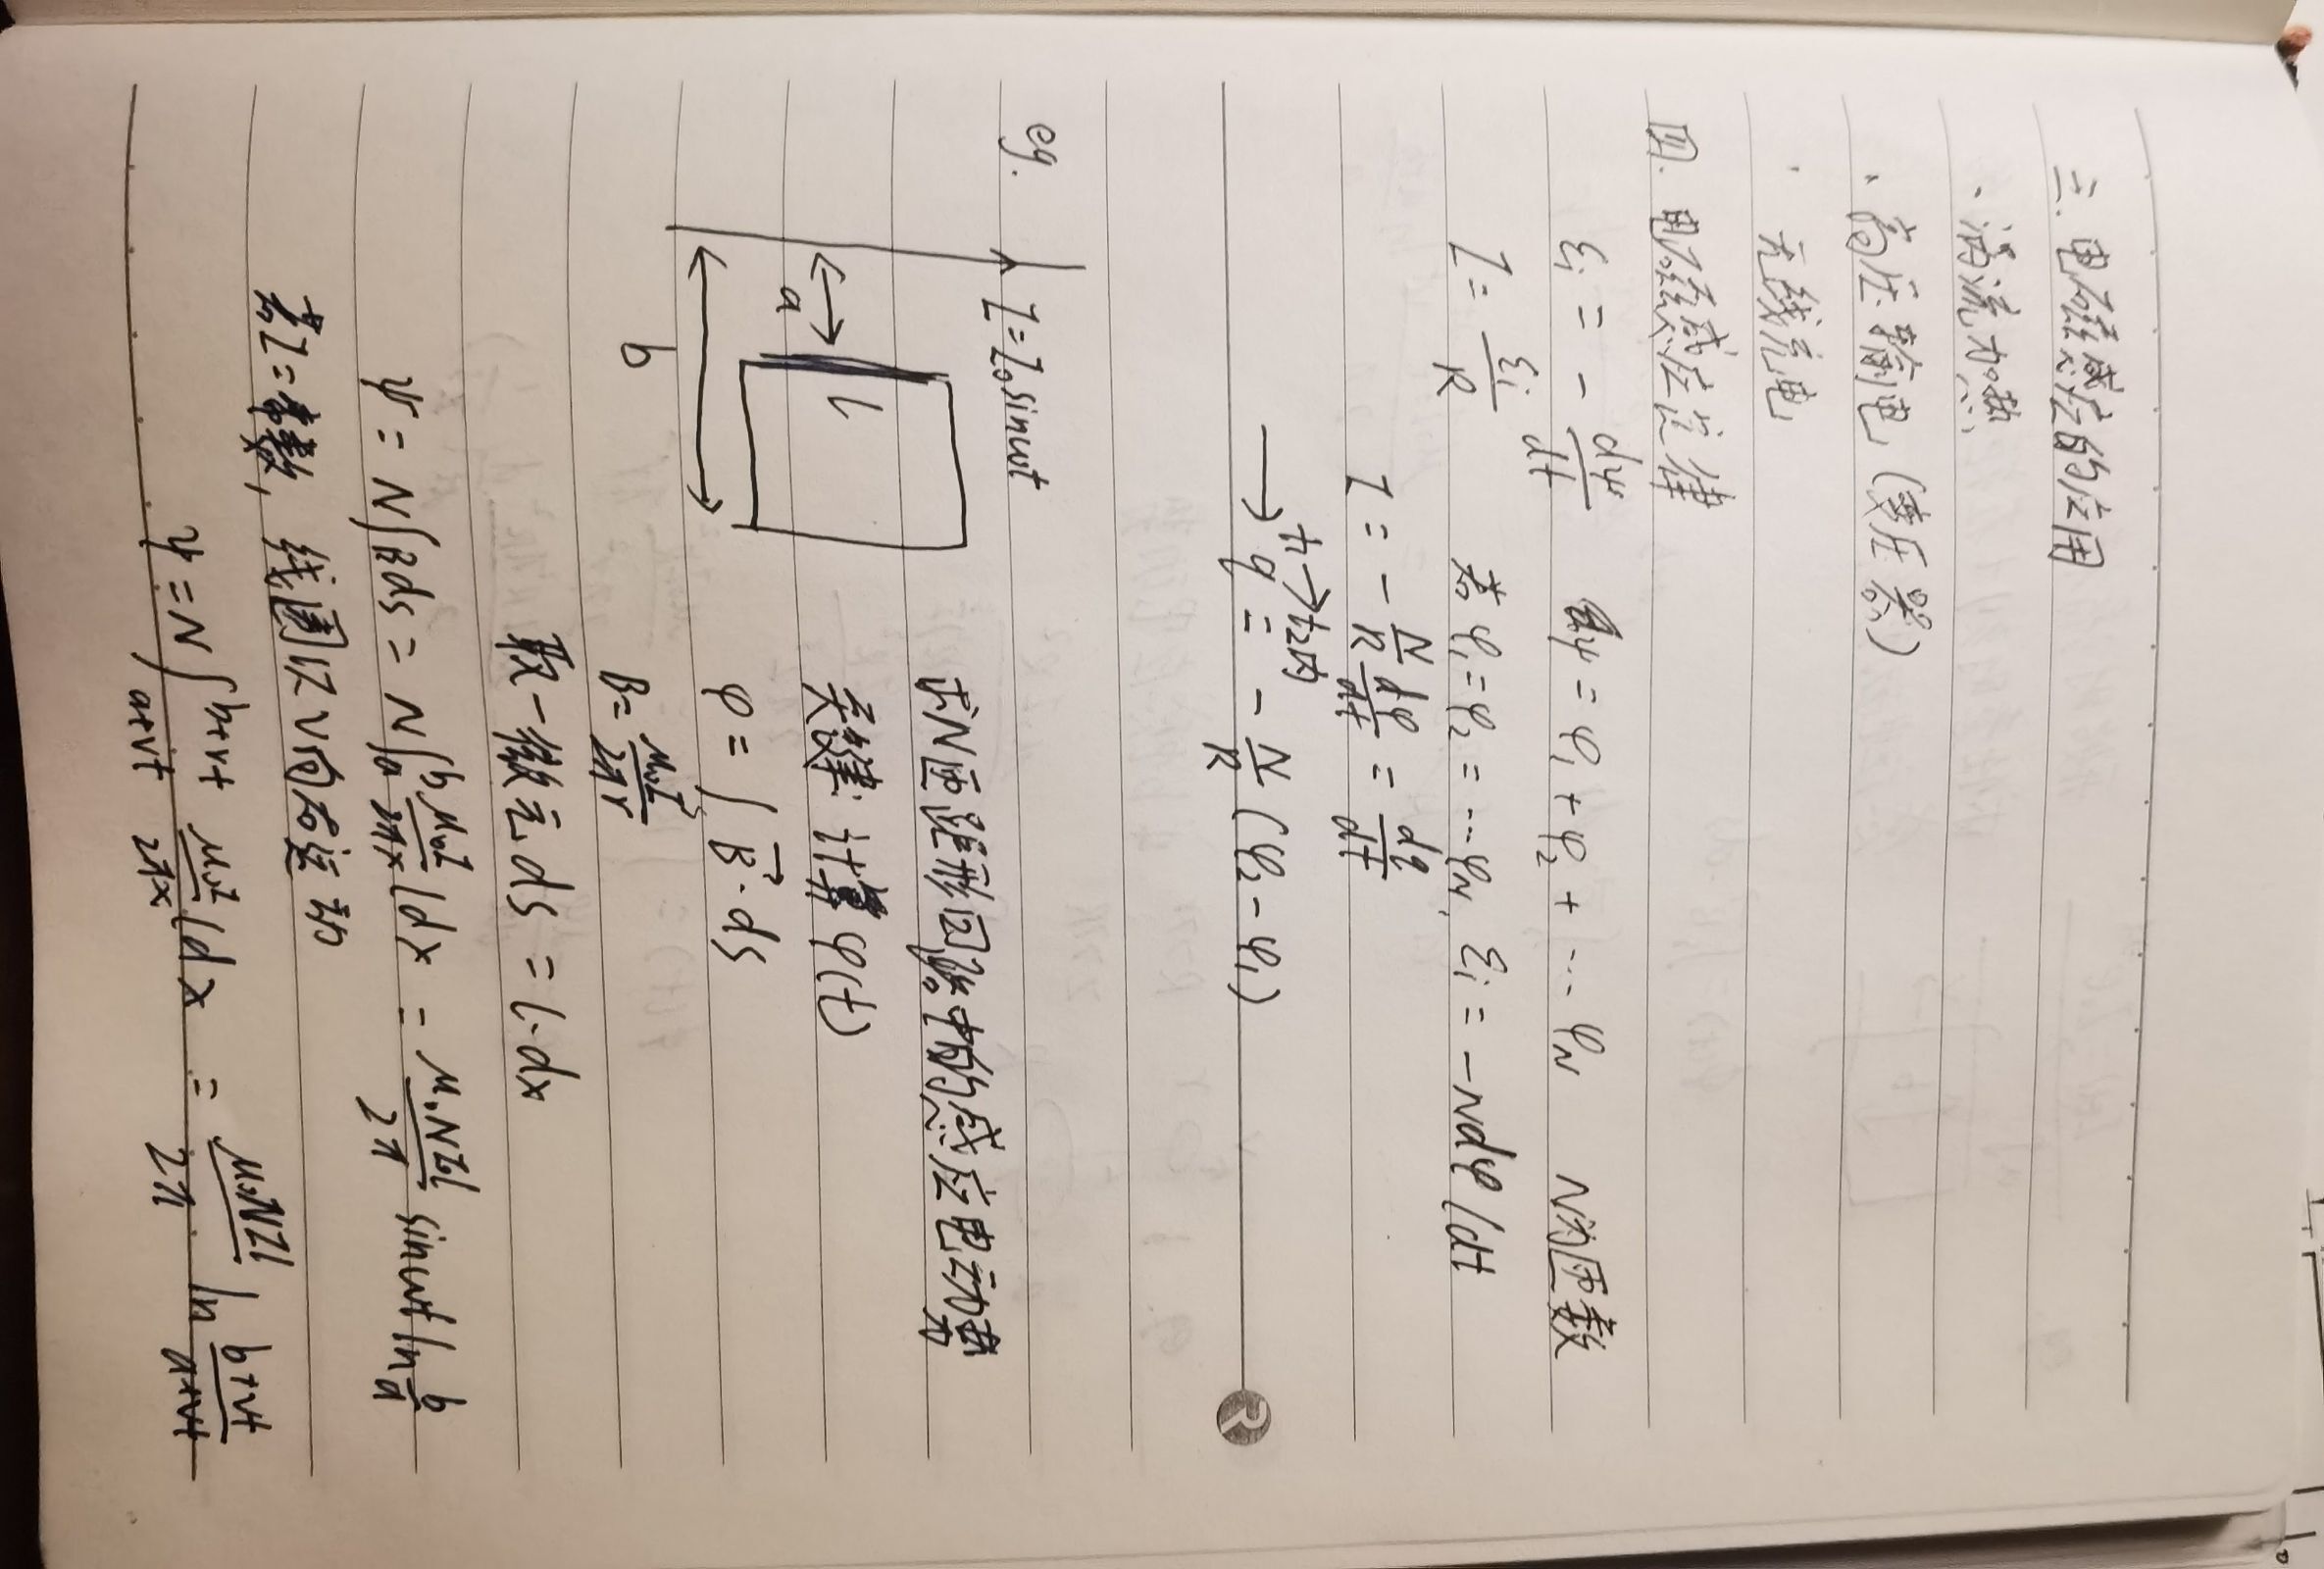 三. 电磁感应的应用
· 涡流加热
· 高压输电 (变压器)
· 无线充电
四. 电磁感应定律
εi = - dψ/dt   ψ = φ1 + φ2 + ... φN   N为匝数
I = εi/R   若 φ1 = φ2 = ... φN, εi = -Ndφ/dt
I = - N/R dφ/dt = dq/dt
t1→t2内
→ q = - N/R (φ2 - φ1)
R
eg.
I = I0 sinωt
求N匝距形回路中的感应电动势
l
关键: 计算 φ(t)
a
φ = ∫s B⃗ · ds
b
B = μ0I/2πr
取一微元 ds = l·dx
ψ = N∫Bds = N∫a^b μ0I/2πx ldx = μ0NI0l/2π sinωt ln b/a
若I=常数, 线圈以V向右运动
ψ = N∫a+vt^b+vt μ0I/2πx ldx = μ0NIl/2π ln b+vt/a+vt